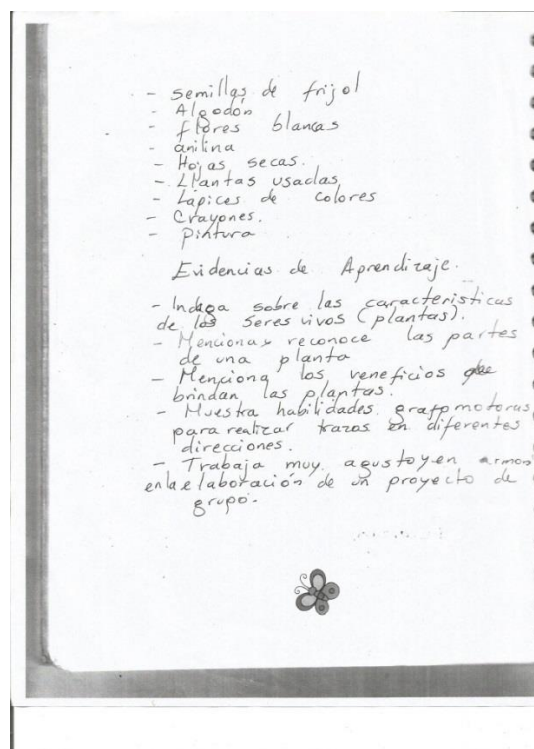 - semillas de frijol
- Algodón
- flores blancas
- anilina
- Hojas secas.
- Llantas usadas
- Lápices de colores
- Crayones.
- pintura
Evidencias de Aprendizaje.
- Indaga sobre las caracteristicas
de los seres vivos (plantas).
- Menciona y reconoce las partes
de una planta
- Menciona los veneficios que
brindan las plantas.
- Muestra habilidades grafomotoras
para realizar trazos en diferentes
direcciones.
- Trabaja muy agusto y en armon
en la elaboración de un proyecto de
grupo.